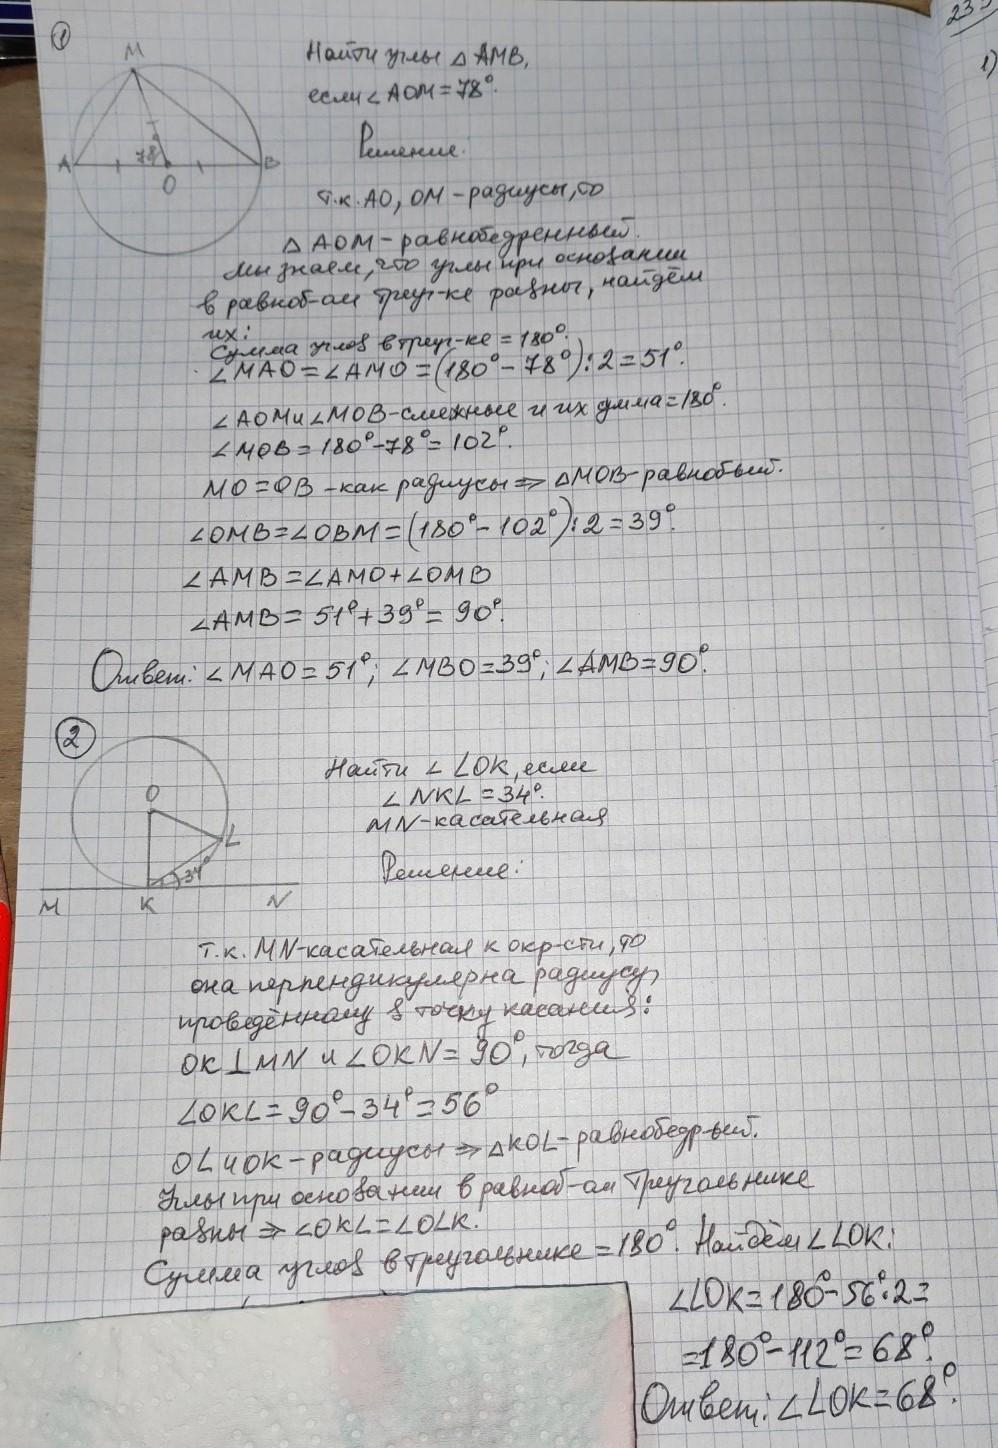 23.
1)
①
M
A
78°
O
B
Найти углы △ AMB,
если ∠ AOM = 78°.
Решение.
т.к. AO, OM – радиусы, то
△ AOM – равнобедренный.
мы знаем, что углы при основании
в равноб-ом треуг-ке равны, найдём
их:
Сумма углов в треуг-ке = 180°.
∠MAO = ∠AMO = (180° – 78°) : 2 = 51°.
∠AOM и ∠MOB – смежные и их сумма = 180°.
∠MOB = 180° – 78° = 102°.
MO = OB – как радиусы ⇒ △MOB – равнобый.
∠OMB = ∠OBM = (180° – 102°) : 2 = 39°.
∠AMB = ∠AMO + ∠OMB
∠AMB = 51° + 39° = 90°.
Ответ: ∠MAO = 51°; ∠MBO = 39°; ∠AMB = 90°.
②
O
L
34°
M
K
N
Найти ∠ LOK, если
∠ NKL = 34°.
MN – касательная
Решение:
т.к. MN – касательная к окр-сти, то
она перпендикулярна радиусу,
проведённому в точку касания:
OK ⊥ MN и ∠OKN = 90°, тогда
∠OKL = 90° – 34° = 56°
OL и OK – радиусы ⇒ △KOL – равнобедр-ый.
Углы при основании в равноб-ом треугольнике
равны ⇒ ∠OKL = ∠OLK.
Сумма углов в треугольнике = 180°. Найдём ∠LOK:
∠LOK = 180° – 56° · 2 =
= 180° – 112° = 68°.
Ответ: ∠LOK = 68°.